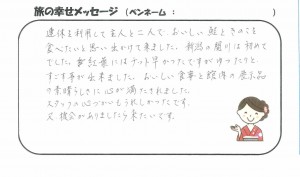 旅の幸せメッセージ（ペンネーム： ）
連休を利用して主人と二人で、おいしい鮭ときのこを
食べたいと思い出かけて来ました。新潟の関川は初めて
でした。紅葉にはチョット早かったですがゆったりと
すごす事が出来ました。おいしい食事と館湾の展示品
の素晴らしさに心が満たされました。
スタッフの心づかいもうれしかったです。
又、機会がありましたら来たいです。